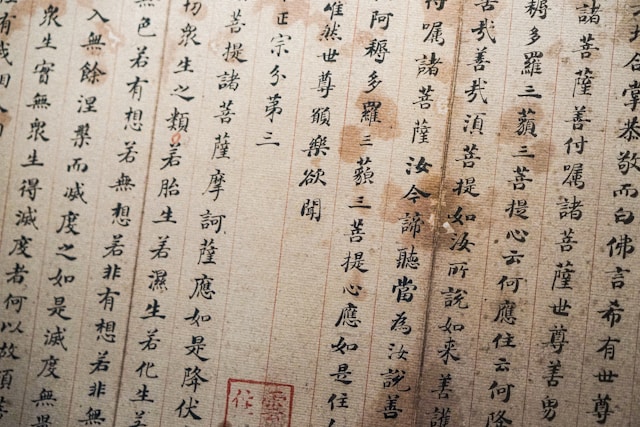 地合掌恭敬而白佛言希有世尊
諸菩薩善付囑諸菩薩世尊善男
耨多羅三藐三菩提心云何應住云何降
哉善哉湏菩提如汝所說如來善護
付囑諸菩薩汝今諦聽當為汝說善
阿耨多羅三藐三菩提心應如是住
唯然世尊願樂欲聞
正宗分第三
菩提諸菩薩摩訶薩應如是降伏
切衆生之類若胎生若濕生若化生若
色若有想若無想若非有想若非無
入無餘涅槃而滅度之如是滅度無量
衆生實無衆生得滅度者何以故湏菩
有我相人